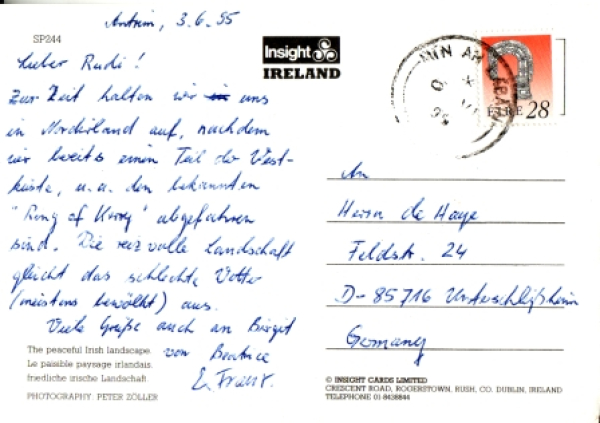 Antrim, 3.6.95
SP244
Lieber Rudi!
Zur Zeit halten wir uns
in Nordirland auf, nachdem
wir bereits einen Teil der West-
küste, u.a. den bekannten
"Ring of Kerry" abgefahren
sind. Die reizvolle Landschaft
gleicht das schlechte Wetter
(meistens bewölkt) aus.
Viele Grüße auch an Birgit
von Beatrice
Franz.
The peaceful Irish landscape.
Le paisible paysage irlandais.
friedliche irische Landschaft.
PHOTOGRAPHY: PETER ZÖLLER
Insight
IRELAND
EIRE 28
An
Herrn de Haye
Feldstr. 24
D-85716 Unterschleißheim
Germany
© INSIGHT CARDS LIMITED
CRESCENT ROAD, ROGERSTOWN, RUSH, CO. DUBLIN, IRELAND
TELEPHONE 01-8438844